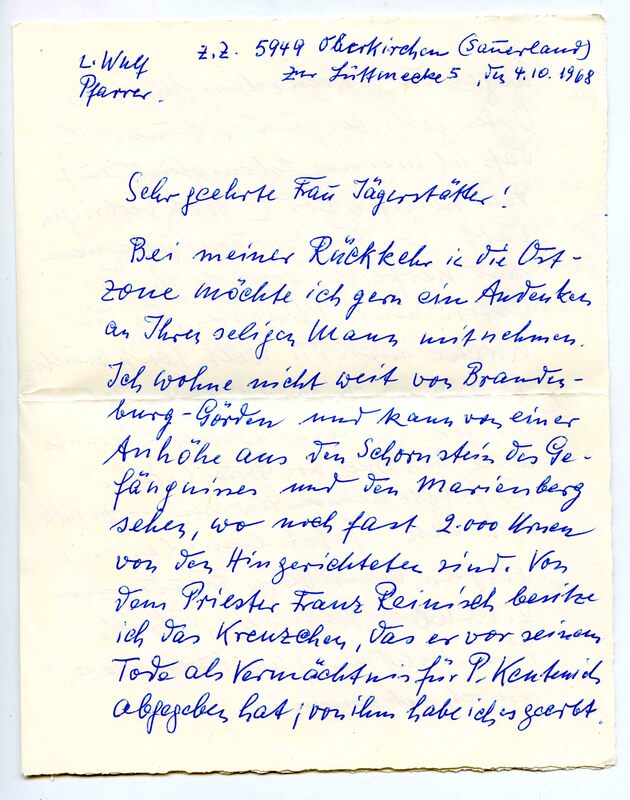 L. Wulf
Pfarrer.
z.Z. 5949 Oberkirchen (Sauerland)
Zur Lüttmecke 5, den 4.10.1968
Sehr geehrte Frau Jägerstätter!
Bei meiner Rückkehr in die Ost-
zone möchte ich gern ein Andenken
an Ihren seligen Mann mitnehmen.
Ich wohne nicht weit von Branden-
burg-Görden und kann von einer
Anhöhe aus den Schornstein des Ge-
fängnisses und den Marienberg
sehen, wo noch fast 2.000 Urnen
von den Hingerichteten sind. Von
dem Priester Franz Reinisch besitze
ich das Kreuzchen, das er vor seinem
Tode als Vermächtnis für P. Kentenich
abgegeben hat; von ihm habe ich es geerbt.